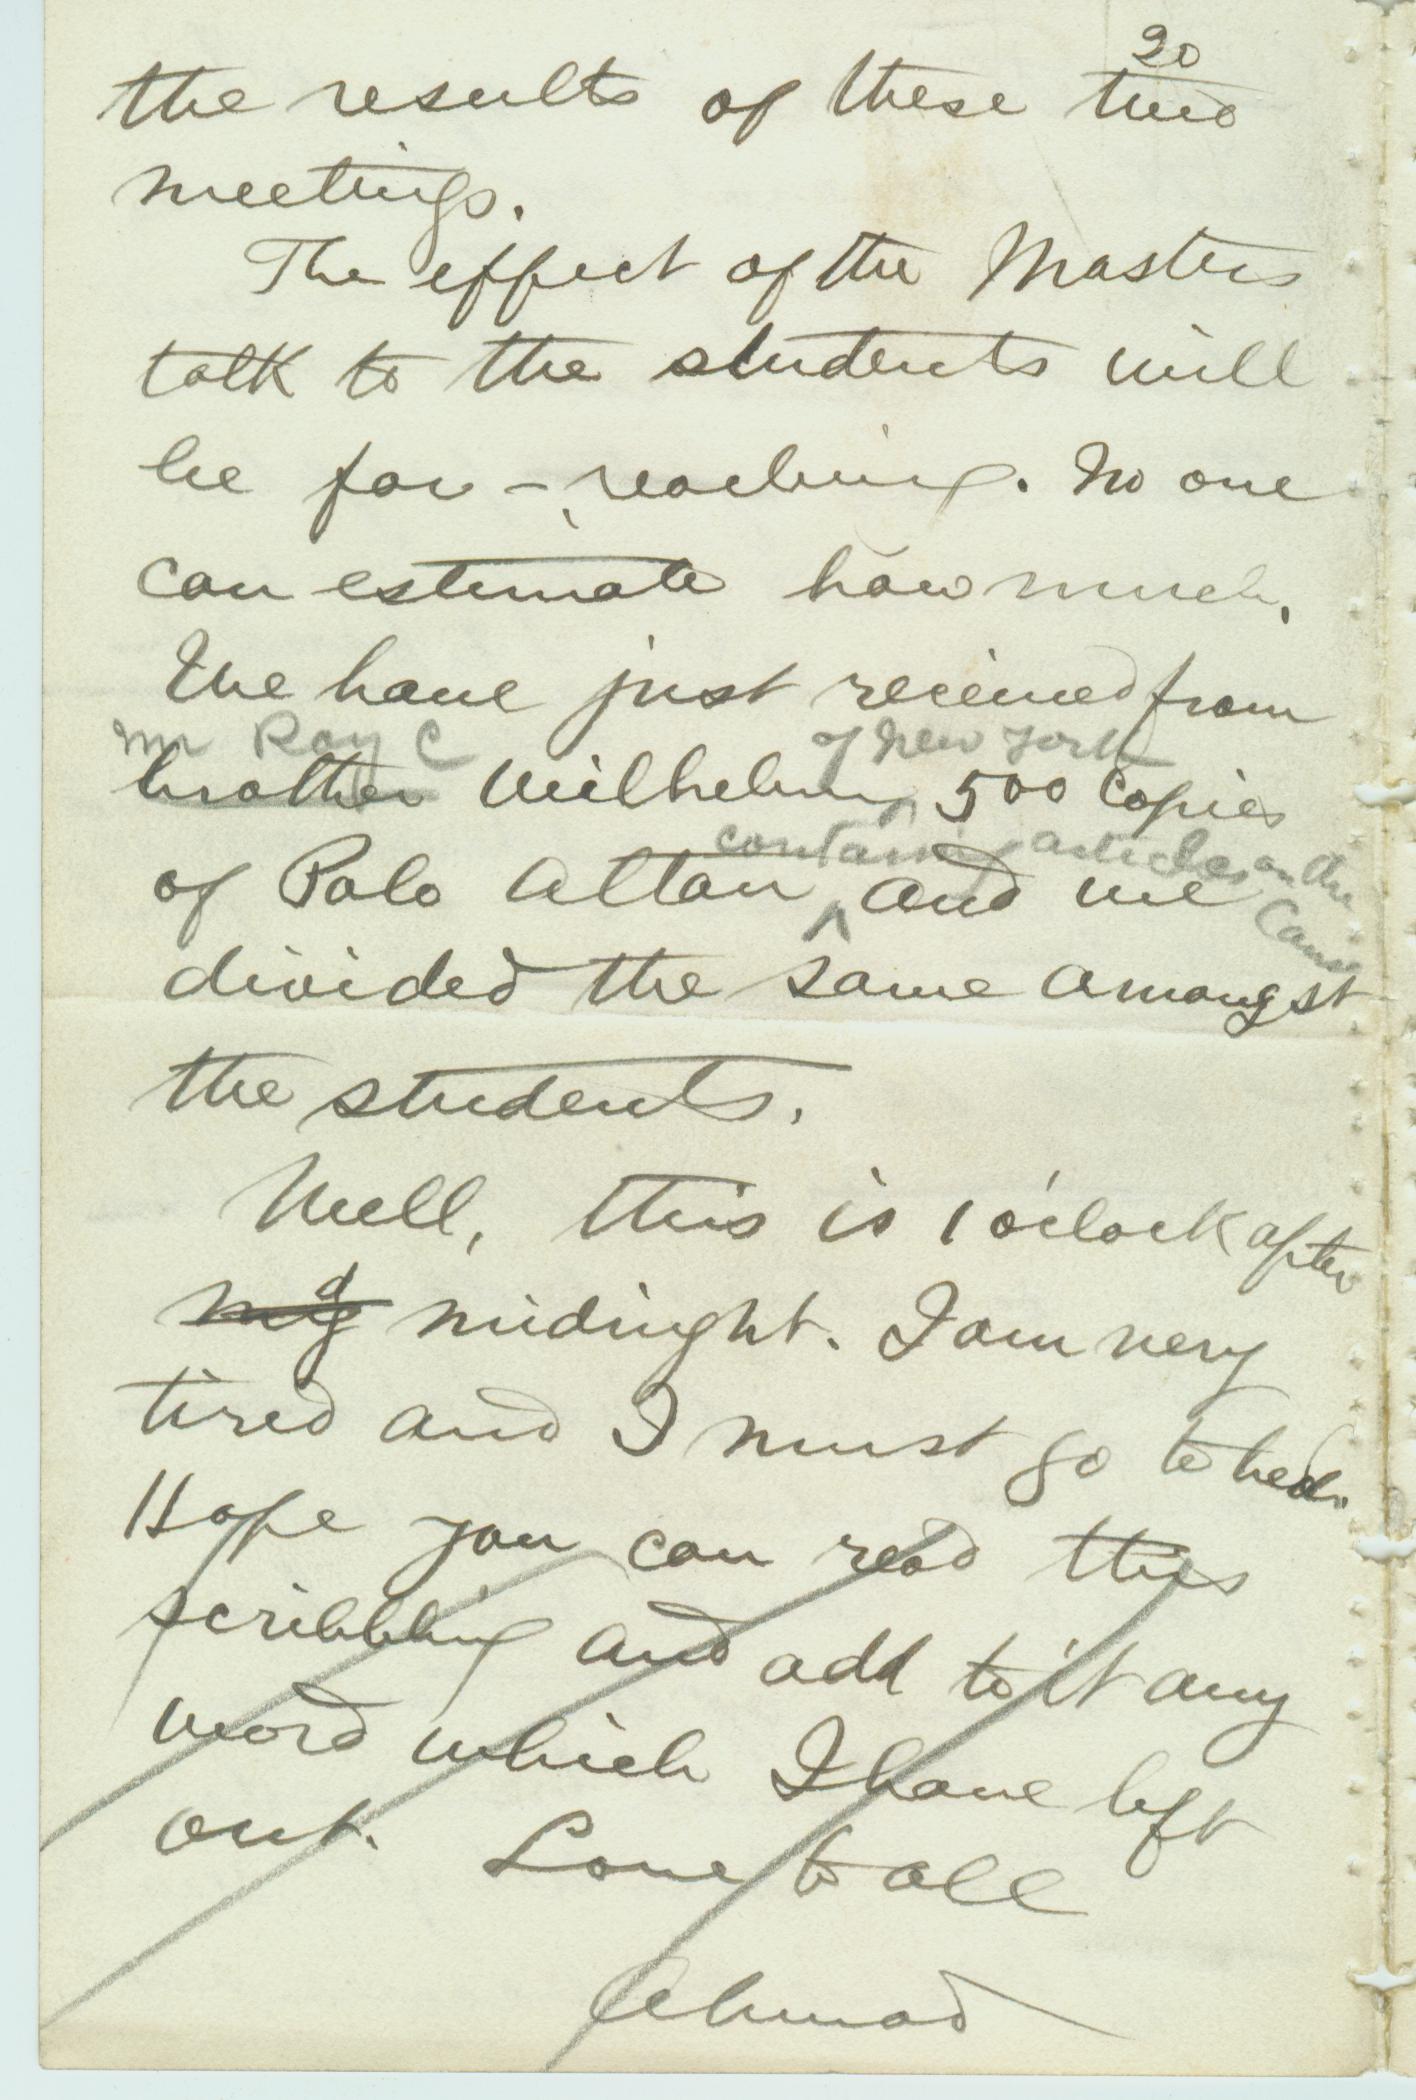 20
the results of these two
meetings.
The effect of the Masters
talk to the students will
be far-reaching. No one
can estimate how much.
We have just received from
Mr Roy C of New York
brother Wilhelm, 500 copies
containing articles on the Cause
of Palo Altan and we
divided the same amongst
the students.
Well, this is 1 o'clock after
midnight. I am very
tired and I must go to bed.
Hope you can read this
scribbling and add to it any
word which I have left
out. Love to all
Ahmad